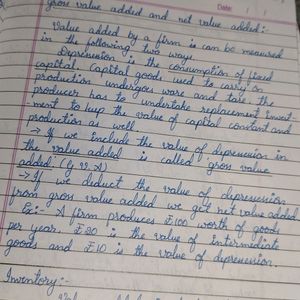 gross value added and net value added:-
Date: / /
Value added by a firm is can be measured
in the following two ways.
Depreression is the consumption of fixed
capital. Capital goods used to carry on
production undergoes ware and tare the
producer has to undertake replacement invest-
-ment to keep the value of capital constant and
production as well
→ If we include the value of depreression in
the value added is called gross value
added. (g.v.A)
→ If we deduct the value of depreression
from gross value added we get net value added
Ex:- A firm produces ₹100 worth of goods
per year, ₹20 is the value of intermediate
goods and ₹10 is the value of depreression.
Inventory:-